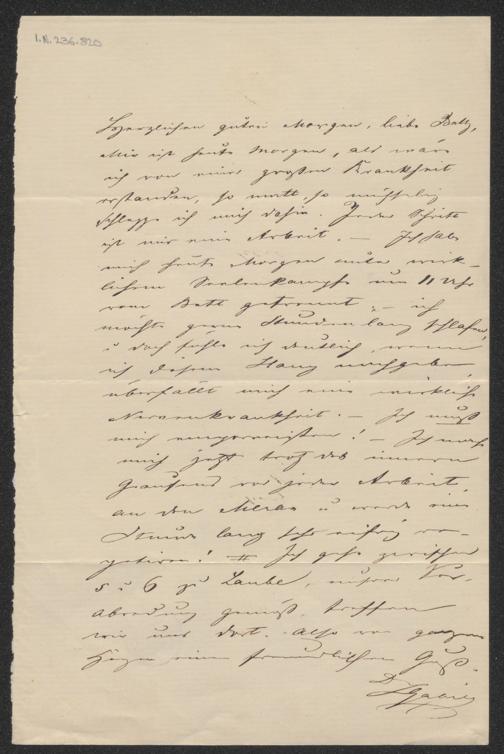 I.N. 236.820
Herzlichen guten Morgen, liebe Betty,
Mir ist heute Morgen, als wäre
ich von einer großen Krankheit
erstanden, so matt, so mühselig
schleppe ich mich dahin. Jeder Schritt
ist mir eine Arbeit. — Ich habe
mich heute Morgen unter wirk-
lichem Seelenkampfe um 11 Uhr
vom Bett getrennt, – ich
möchte gerne Stunden lang schlafen,
u doch fühle ich deutlich, wenn
ich diesem Hang nachgebe,
überfällt mich eine wirkliche
Nervenkrankheit. — Ich muß
mich emporreißen! — Ich mache
mich jetzt trotz des innern
Grausens vor jeder Arbeit
an den und werde eine
Stunde lang sehr eifrig re-
petiren! Ich gehe zwischen
5 u 6 zu Laube, unserer Ver-
abredung gemäß treffen
wir uns dort. Also von ganzem
Herzen einen freundlichen Gruß.